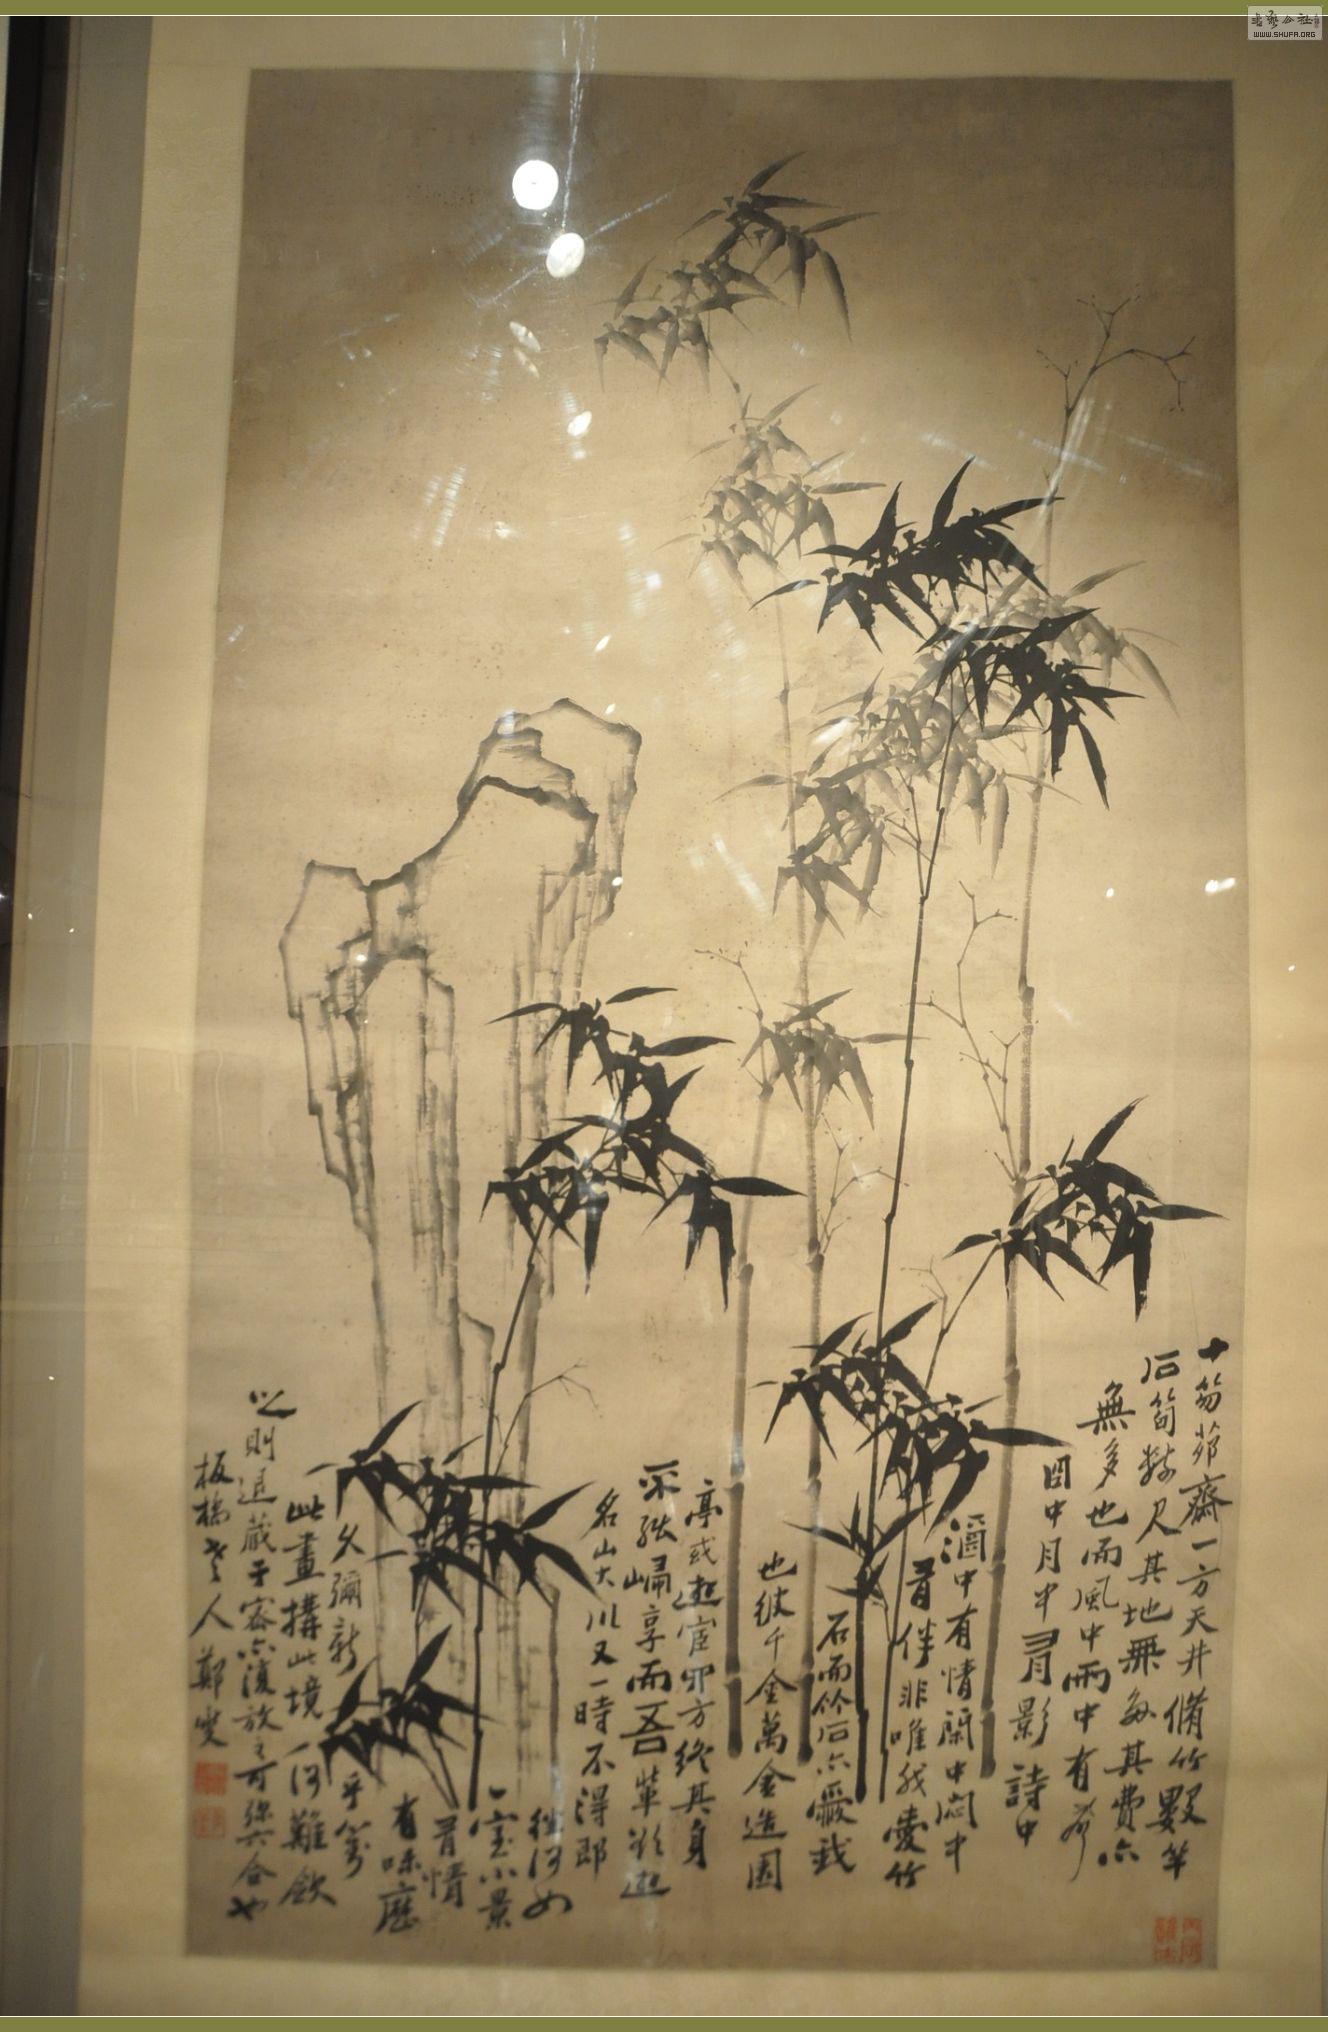 十笏茅齋一方天井脩竹數竿
石筍數尺其地無多其費亦
無多也而風中雨中有聲
日中月中有影詩中
酒中有情閑中悶中
有伴非唯我愛竹
石而竹石亦愛我
也彼千金萬金造園
亭或遊宦四方終其身
不能歸享而吾輩欲遊
名山大川又一時不得即
往何如
一室小景
有情
有味歷
久彌新乎對
此畫構此境何難歛
之則退藏于密亦復放之可彌六合也
板橋老人鄭燮
書藝公社
WWW.SHUFA.ORG